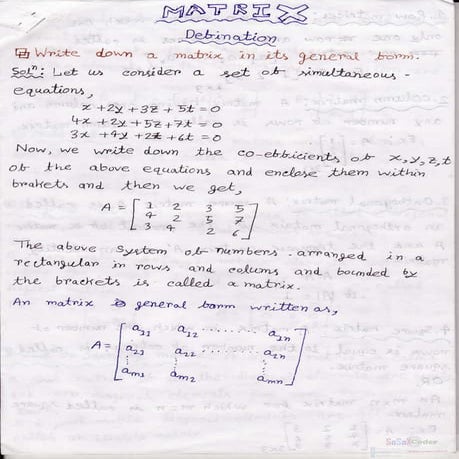 MATRIX
Defination
Write down a matrix in its general form.
Solⁿ: Let us consider a set of simultaneous-
equations,
x + 2y + 3z + 5t = 0
4x + 2y + 5z + 7t = 0
3x + 4y + 2z + 6t = 0
Now, we write down the co-efficients of x, y, z, t
of the above equations and enclose them within
brakets and then we get,
A = [ 1 2 3 5
4 2 5 7
3 4 2 6 ]
The above system of numbers arranged in a
rectangular in rows and colums and bounded by
the brackets is called a matrix.
An matrix is general form written as,
A = [ a11 a12 ........ a1n
a21 a22 ........ a2n
am1 am2 amn ]
SaSaXCoder